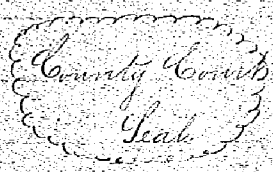 County Court
Seal